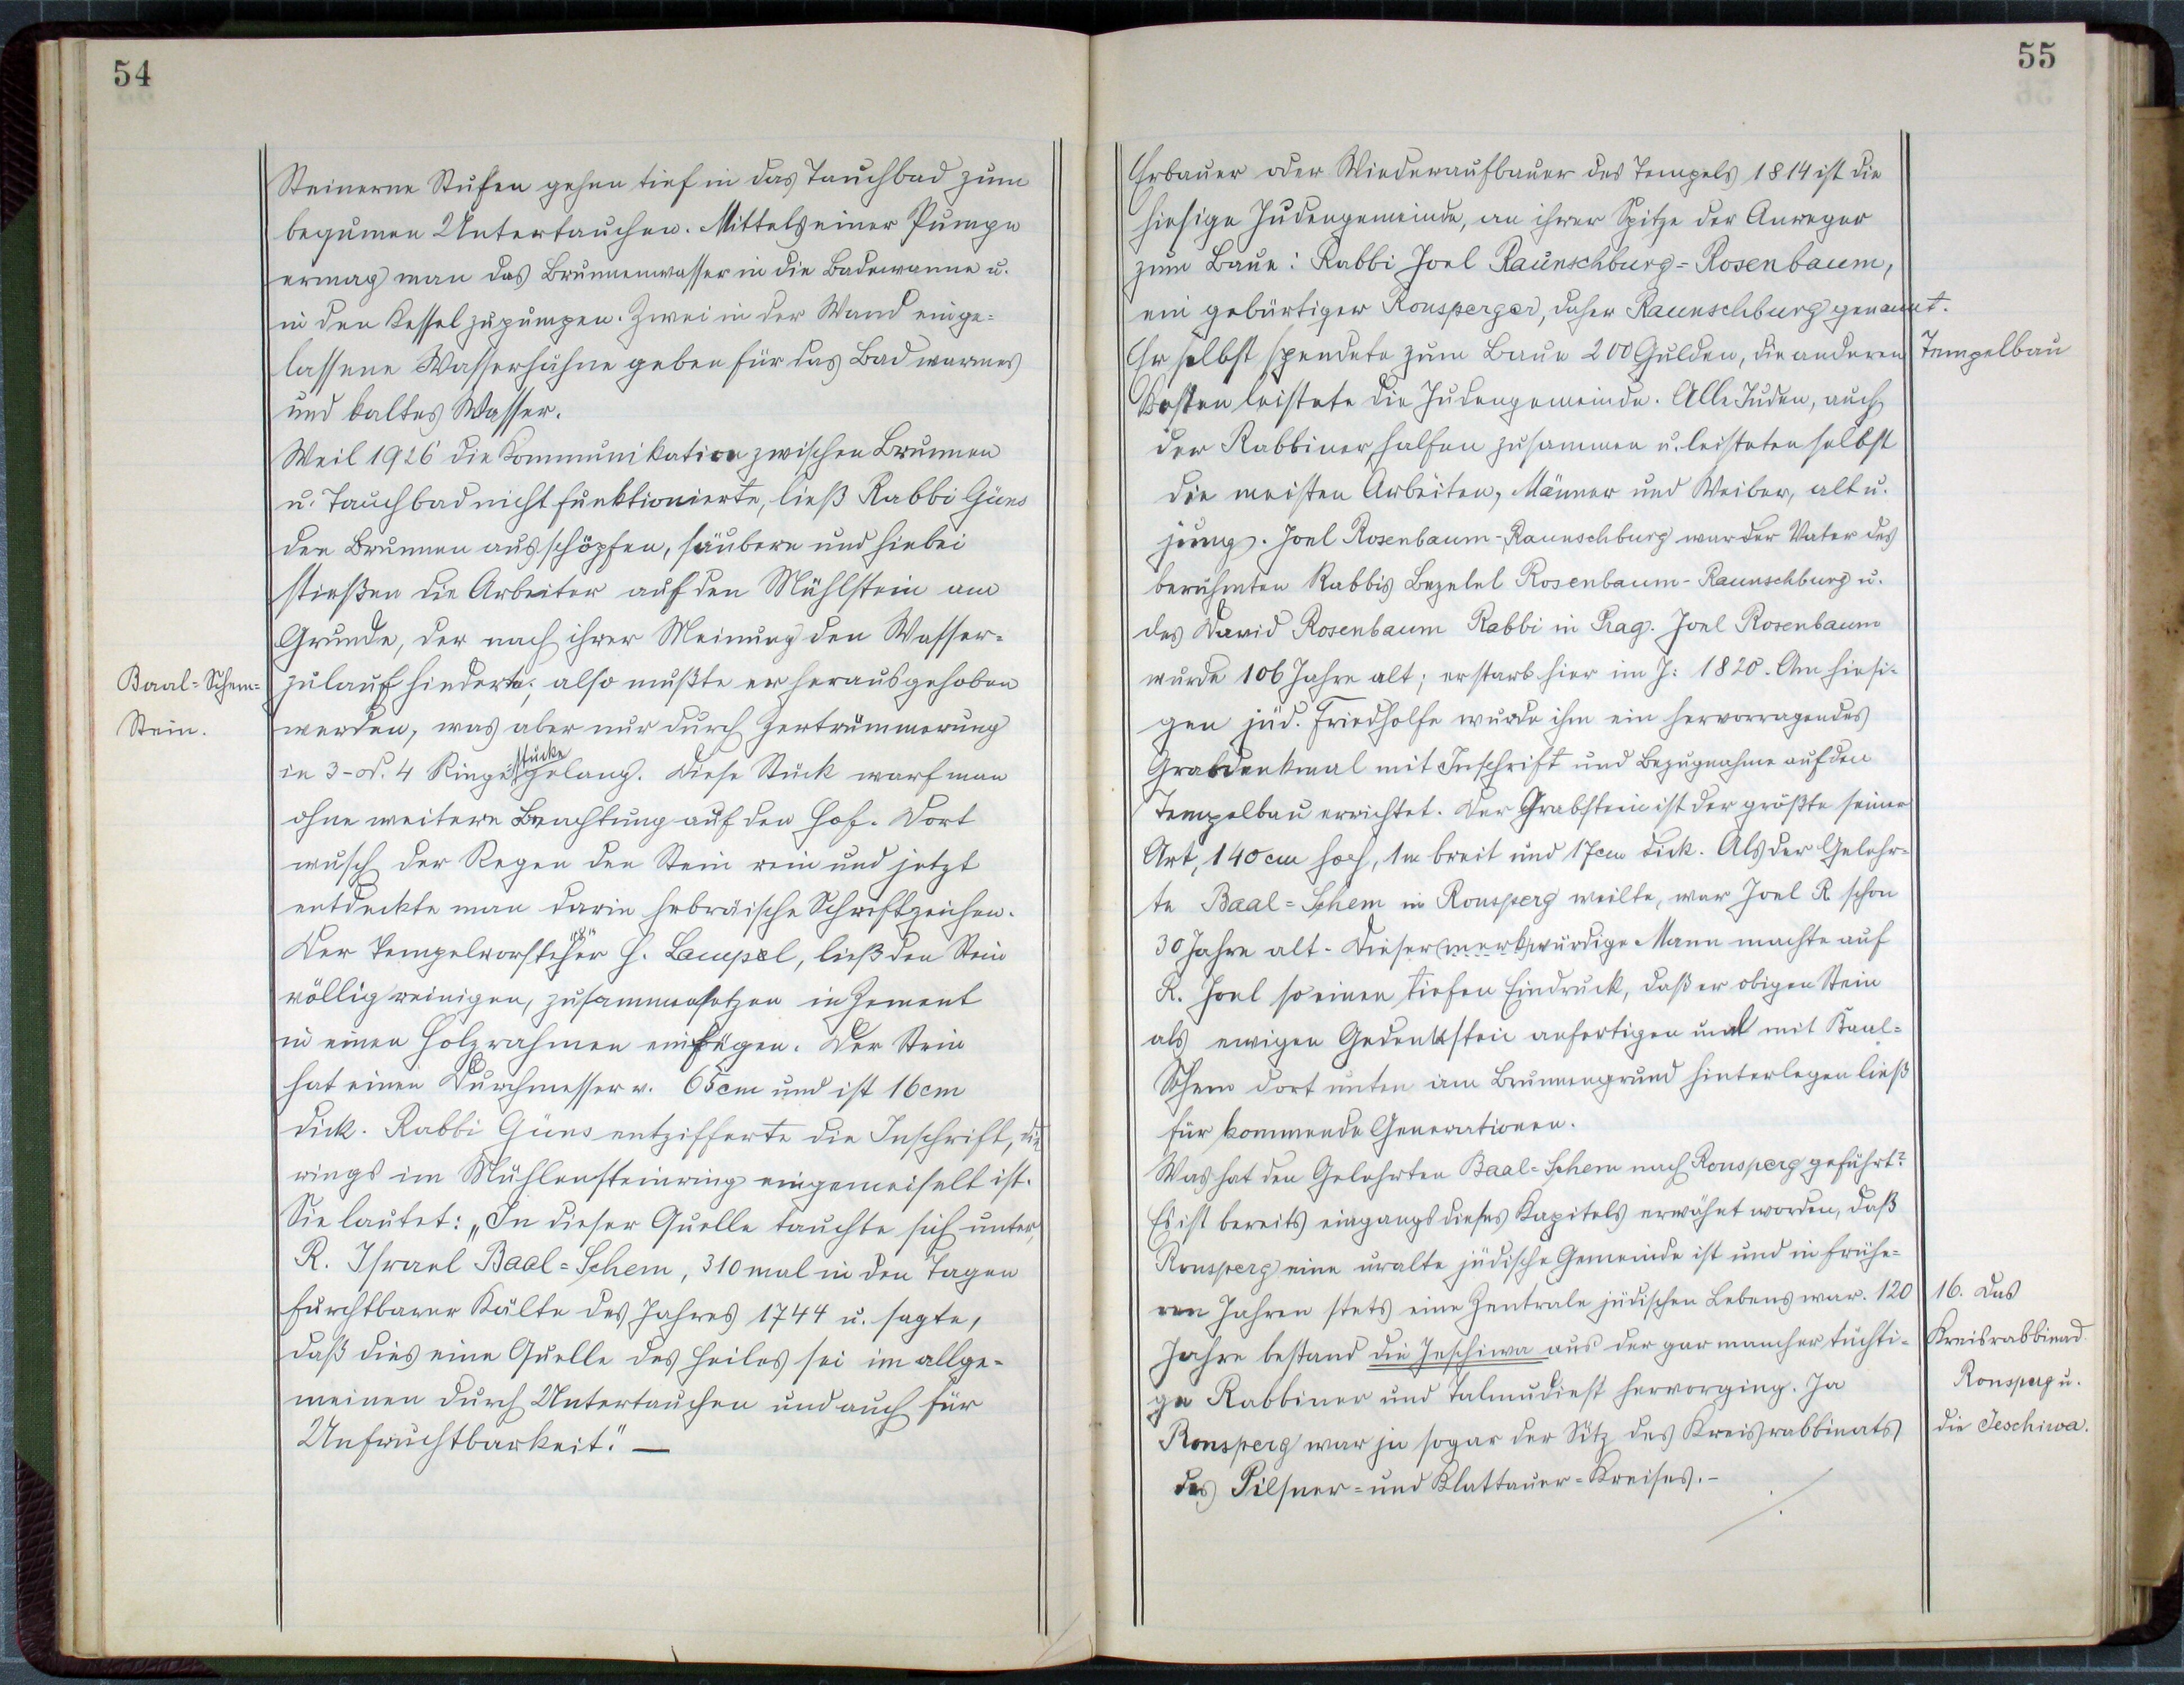 54
Steinerne Stufen gehen tief in das Tauchbad zum
bequemen Untertauchen. Mittels einer Pumpe
ermag man das Brunnenwasser in die Badewanne u.
in den Kessel zu pumpen. Zwei in der Wand einge=
lassene Wasserhähne geben für das Bad warmes
und kaltes Wasser.
Weil 1926 die Kommunikation zwischen Brunnen
u. Tauchbad nicht funktionierte, ließ Rabbi Güns
den Brunnen ausschöpfen, säubern und hiebei
stießen die Arbeiter auf den Mühlstein am
Grunde, der nach ihrer Meinung den Wasser=
Baal=Schem=
Stein.
zulauf hinderte; also mußte er herausgehoben
werden, was aber nur durch Zertrümmerung
in 3- od. 4 Ringe=stücke gelang. Diese Stück warf man
ohne weitere Beachtung auf den Hof. Dort
wusch der Regen den Stein rein und jetzt
entdeckte man darin hebräische Schriftzeichen.
Der Tempelvorsteher H. Lampel, ließ den Stein
völlig reinigen, zusammensetzen in Zement
in einen Holzrahmen einfügen. Der Stein
hat einen Durchmesser v. 65cm und ist 16cm
dick. Rabbi Güns entzifferte die Inschrift, die
rings im Mühlensteinring eingemeiselt ist.
Sie lautet: „In dieser Quelle tauchte sich unter,
R. Israel Baal=Schem, 310 mal in den Tagen
furchtbarer Kälte des Jahres 1744 u. sagte,
daß dies eine Quelle des Heiles sei im allge=
meinen durch Untertauchen und auch für
Unfruchtbarkeit." —
55
Erbauer oder Wiederaufbauer des Tempels 1814 ist die
hiesige Judengemeinde, an ihrer Spitze der Anreger
zum Baue: Rabbi Joel Raunschburg=Rosenbaum,
ein gebürtiger Ronsperger, daher Raunschburg genannt.
Er selbst spendete zum Baue 200 Gulden, die anderen
Tempelbau
Kosten leistete die Judengemeinde. Alle Juden, auch
der Rabbiner halfen zusammen u. leisteten selbst
die meisten Arbeiten, Männer und Weiber, alt u.
jung. Joel Rosenbaum-Raunschburg war der Vater des
berühmten Rabbis Bezelel Rosenbaum-Raunschburg u.
des David Rosenbaum Rabbi in Prag. Joel Rosenbaum
wurde 106 Jahre alt; er starb hier im J: 1820. Am hiesi-
gen jüd. Friedholfe wurde ihm ein hervorragendes
Grabdenkmal mit Inschrift und Bezugnahme auf den
Tempelbau errichtet. Der Grabstein ist der größte seiner
Art, 140cm hoch, 1m breit und 17cm dick. Als der Gelehr-
te Baal=Schem in Ronsperg weilte, war Joel R. schon
30 Jahre alt. Dieser (merkwürdige Mann machte auf
R. Joel so einen tiefen Eindruck, daß er obigen Stein
als ewigen Gedenkstein anfertigen und mit Baal=
Schem dort unten am Brunnengrund hinterlegen ließ
für kommende Generationen.
Was hat den Gelehrten Baal=Schem nach Ronsperg geführt?
Es ist bereits eingangs dieses Kapitels erwähnt worden, daß
Ronsperg eine uralte jüdische Gemeinde ist und in frühe=
ren Jahren stets eine Zentrale jüdischen Lebens war. 120
16. Das
Kreisrabbinad
Ronsperg u.
die Jeschiwa.
Jahre bestand die Jeschiwa aus der gar mancher tüchti-
ge Rabbiner und Talmudist hervorging. Ja
Ronsperg war ja sogar der Sitz des Kreisrabbinats
des Pilsner= und Klattauer=Kreises.-